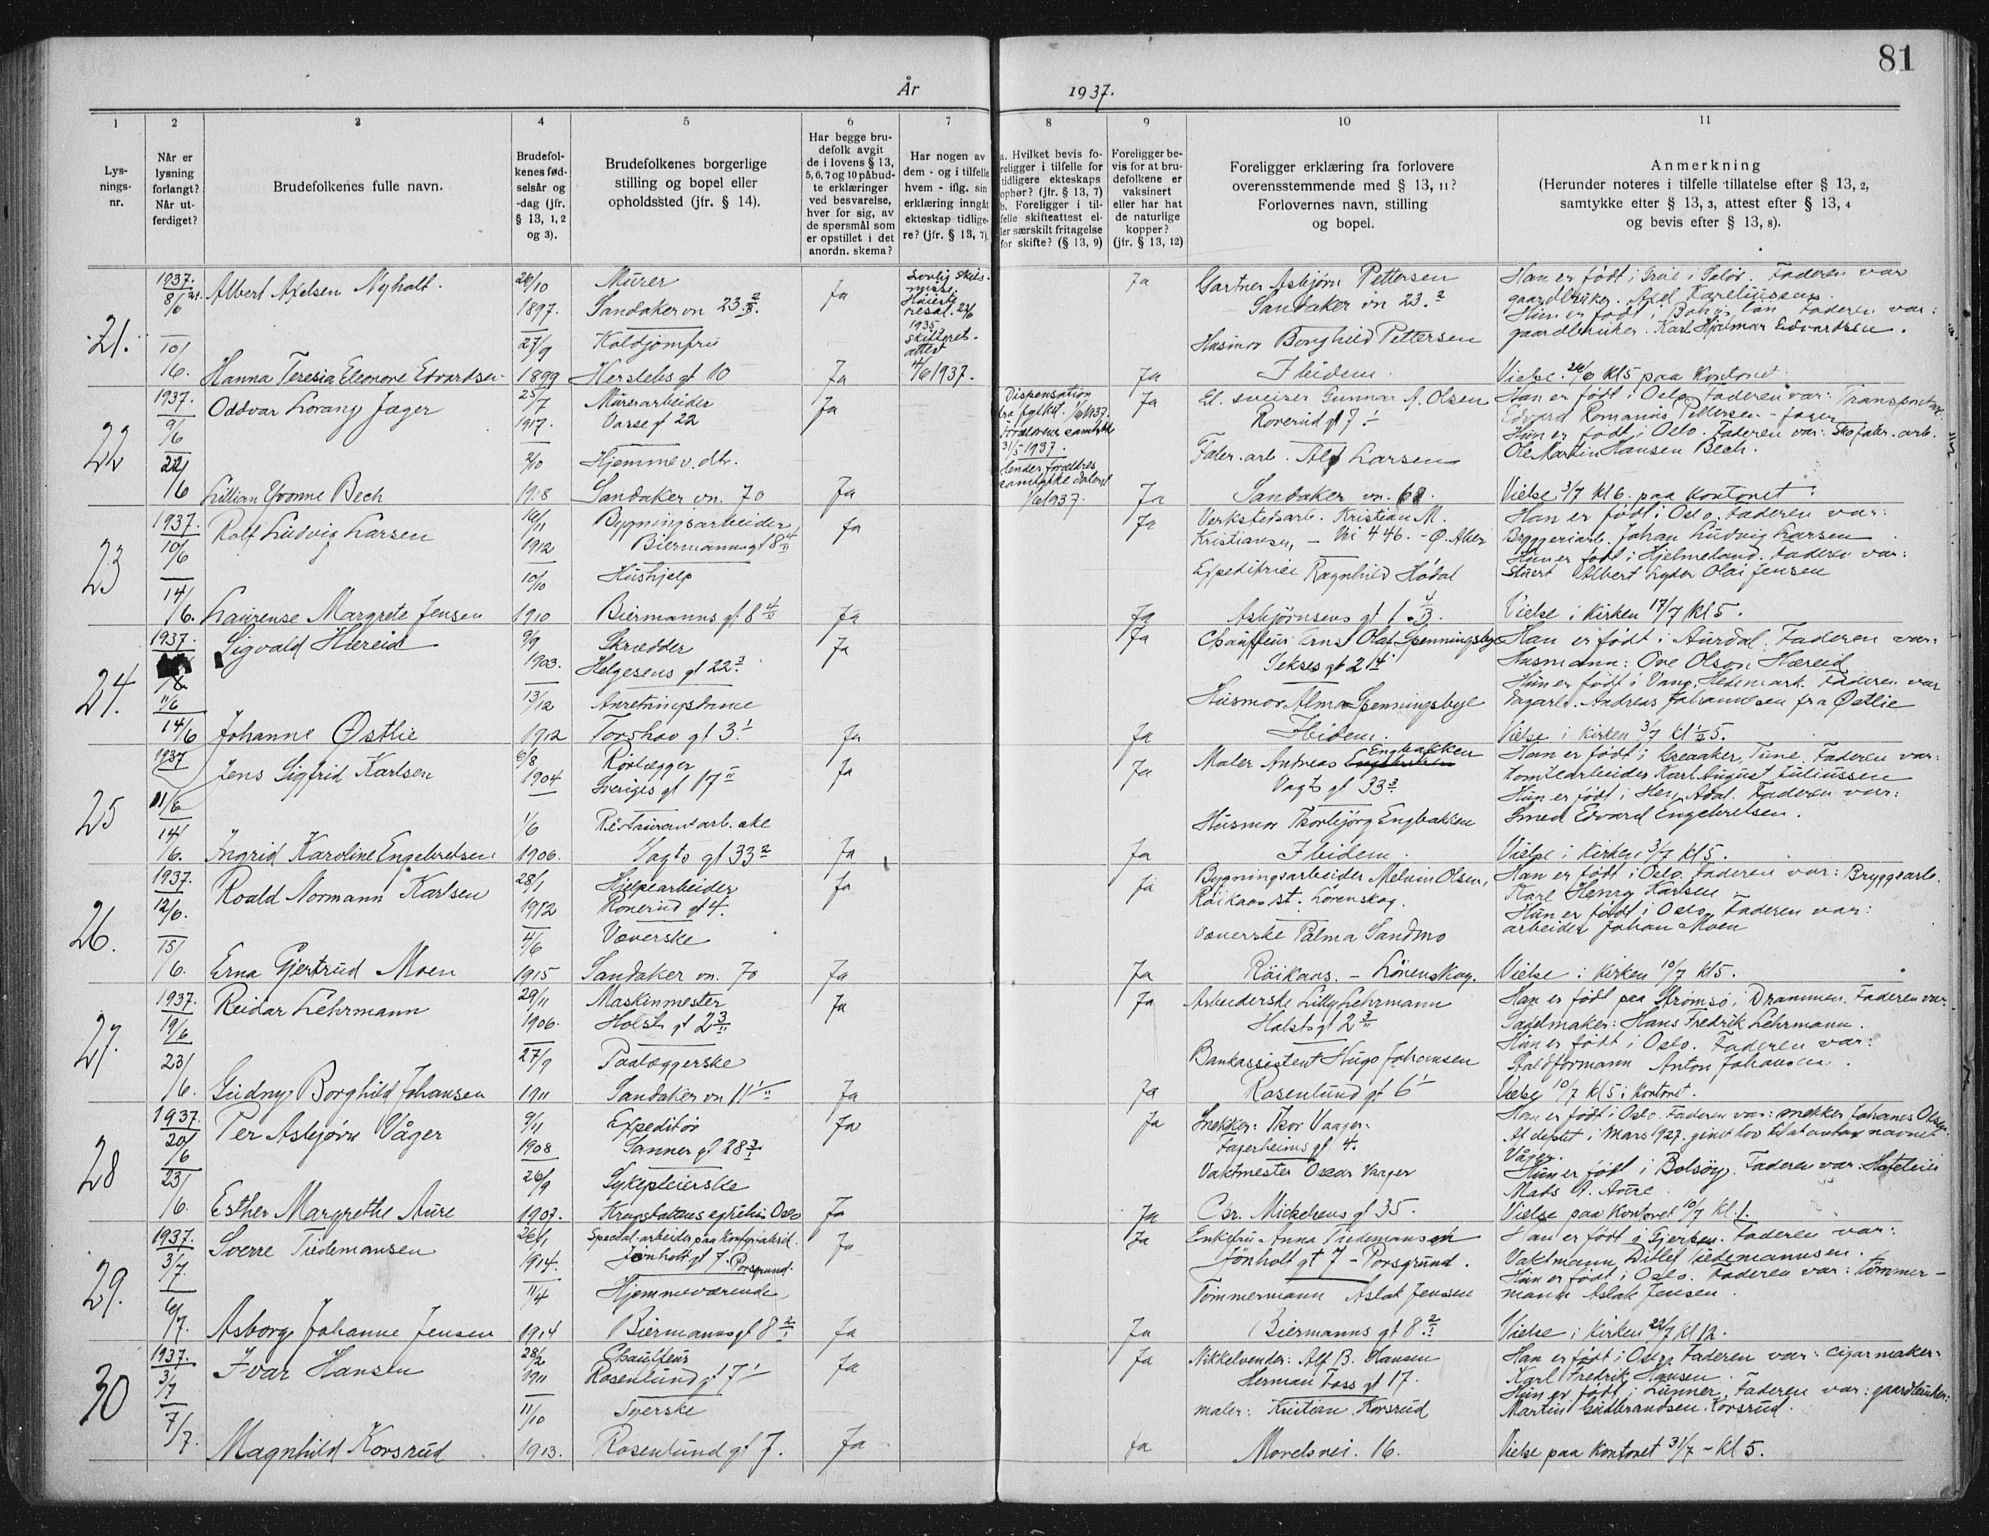 81
År 1937.
1 2 3 4 5 6 7 8 9 10 11
Lys-
nings-
nr.
Når er
lysning
forlangt?
Når ut-
ferdiget?
Brudefolkenes fulle navn.
Brudefol-
kenes fød-
selsår og
-dag (jfr.
§ 13, 1, 2
og 3).
Brudefolkenes borgerlige
stilling og bopel eller
opholdssted (jfr. § 14).
Har begge bru-
defolk avgit
de i lovens § 13,
5, 6, 7 og 10 påbud-
te erklæringer
ved besvarelse,
hver for sig, av
de spørsmål som
er opstillet i det
anordn. skema?
Har nogen av
dem - og i tilfelle
hvem - iflg. sin
erklæring inngåt
ekteskap tidlige-
re? (jfr. § 13, 7).
a. Hvilket bevis fo-
religger i tilfelle for
tidligere ekteskaps
ophør? (jfr. § 13, 7)
b. Foreligger i til-
felle skifteattest el-
ler særskilt fritagelse
for skifte? (§ 13, 9)
Foreligger be-
vis for at bru-
defolkene er
vaksinert
eller har hat
de naturlige
kopper?
(jfr. § 13, 12)
Foreligger erklæring fra forlovere
overensstemmende med § 13, 11?
Forlovernes navn, stilling
og bopel.
Anmerkning
(Herunder noteres i tilfelle tillatelse efter § 13, 2,
samtykke efter § 13, 3, attest efter § 13, 4
og bevis efter § 13, 8).
21.
1937.
8/6
10/6.
Albert Axelsen Nyholt.
1897.
Murer
Sandaker vn 23
Ja
1935.
skifteret-
attest
4/6 1937.
Ja
Gartner Asbjørn Pettersen
Sandaker vn 23.
Han er født i Grue i Solør. Faderen var
gaardbruker. Axel Kareliussen.
Faderen var:
gaardbruker. Karl Hjalmar Edvardsen.
Hanna Teresia Eleonore Edvardsen
27/9
1899
Koldjomfru
Herslebs gt 10
Ja
Ja
Husmor Borghild Pettersen
Ibidem.
Vielse. 26/6 kl 5 paa Kontoret
22
1937.
9/6
22/6
Oddvar Lorang Jæger
25/7
1917.
Murerarbeider
Ja
Dispensation
fra fylket
31/5 1937.
Ja
Gunnar A. Olsen
Han er født i Oslo Faderen var: Transportarb.
Edvard Romanus Pettersen - Jæger
Hun er født i Oslo. Faderen var:
Ole Martin Hansen Bech.
Lillian Yvonne Bech
2/10
1918
Hjemmev. dtr.
Sandaker vn. 70
Ja
Ja
Alf Larsen
Sandaker vn.
Vielse 3/7 kl 6. paa Kontoret.
23
1937.
10/6
14/6.
Rolf Ludvig Larsen
16/11
1912
Bygningsarbeider,
Biermannsgt 8
Ja
Ja
Verkstedsarb. Kristian M.
Kristiansen, - Vri 446. - Ø. Aker
Han er født i Oslo, Faderen var:
Bryggeriarb. Johan Ludvig Larsen
Hun er født i Hjelmeland. Faderen var:
Stuert Albert Lyder Olai Jensen
Laurense Margrete Jensen
10/10
1910
Hushjelp
Biermanns gt 8
Ja
Ja
Ragnhild Hödal
Asbjørnsens gt 1
Vielse i Kirken 17/7 Kl 5.
24.
1937.
11/6
14/6
Sigvald Hæreid
9/9
1903.
Skrædder
Helgesens gt 22
Ja
Ja
Chauffeur Arne Olaf Spenningsbye
Han er født i Aurdal. Faderen var:
Husmann: Ove Olson Hæreid
Hun er født i Vang, Hedemark. Faderen var
Andreas Johannesen fra Østlie
Johanne Østlie
13/12
1912
Torshov gt 3
Ja
Ja
Husmor Alma Spenningsbye
Ibidem.
Vielse i Kirken 3/7 kl ½ 5.
25
1937
11/6
14/6.
Jens Sigfrid Karlsen
6/8
1904
Rørlægger
Sveriges gt 17
Ja
Ja
Maler Andreas Engbakken
Vogts gt 33
Han er født i Greaaker, Tune. Faderen var:
Karl August Juliussen
Hun er født i Hen, Ådal. Faderen var:
Smed Edvard Engebretsen.
Ingrid Karoline Engebretsen
1/6
1906.
Restaurant arb. ske
Vogts gt 33
Ja
Ja
Husmor Thorbjörg Engbakken
Ibidem.
Vielse i Kirken 3/7 kl 5.
26.
1937.
12/6.
15/6.
Roald Normann Karlsen
28/1
1912
Hjelpearbeider
Ronerud gt 4.
Ja
Ja
Bygningsarbeider Melvin Olsen,
Röikaas st. Lørenskog.
Han er født i Oslo. Faderen var: Bryggearb.
Karl Henry Karlsen
Hun er född i Oslo. Faderen var:
arbeider Johan Moen
Erna Gjertrud Moen
4/6
1915
Væverske
Sandaker vn. 70
Ja
Ja
Væverske Palma Sandmo
Röikaas. - Lörenskog.
Vielse i Kirken 10/7 kl 5.
27.
1937.
19/6
23/6.
Reidar Lehrmann
29/11
1906.
Maskinmester
Holst gt 2
Ja
Ja
Arbeiderske Lilly Lehrmann
Holsts gt 2
Han er født paa Strømsø i Drammen. Faderen var
Sadelmaker: Hans Fredrik Lehrmann.
Hun er født i Oslo. Faderen var:
Staldformann Anton Johansen.
Gudny Borghild Johansen
27/9
1911
Paalæggerske
Sandaker vn 11
Ja
Ja
Bankassistent Hugo Johansen
Rosenlund gt 6
Vielse 10/7 kl 5 i Kontoret.
28
1937.
20/6
23/6.
Per Asbjørn Våger
9/11
1908
Expeditør
Sanner gt 28
Ja
Ja
Snekker: Thor Vaager.
Fagerheims gt 4.
Han er født i Oslo. Faderen var: snekker Johanes Olsen.
At deptet i Mars 1927. givet lov til at antag navnet
Våger.
Hun er født i Bolsöy. Faderen var:
Mads A. Aure.
Esther Margrethe Aure
26/9
1907.
Sykepleierske
Ja
Ja
Vaktmester Oscar Vaager
Chr. Michelsens gt 35.
Vielse paa Kontoret 10/7 kl. 1.
29.
1937.
3/7
6/7.
Sverre Tiedemansen
26/1
1914.
Jönholt gt 7. Porsgrund.
Ja
Ja
Enkefru Anna Tiedemansen
Jönholt gt 7 - Porsgrund.
Han er født i Gjerpen. Faderen var:
Vaktmann, Ditlef Tiedemannsen.
Hun er født i Oslo. Faderen var: tömmer-
mann Aslak Jensen.
Asborg Johanne Jensen
11/4
1914
Hjemmeværende
Biermannsgt 8
Ja
Ja
Tömmermann Aslak Jensen
Biermanns gt 8.
Vielse i Kirken 22/7 kl 12.
30
1937.
3/7
7/7.
Ivar Hansen
28/2
1911
Chauffeur
Rosenlund gt 17
Ja
Ja
Alf B. Hansen
Herman Foss gt 17.
Han er født i Oslo, Faderen var: cigarmaker
Karl Fredrik Hansen.
Hun er født i Lunner. Faderen var: gaardbruker:
Martin Gudbrandsen Korsrud.
Magnhild Korsrud
11/10
1913.
Syerske
Rosenlund gt 7.
Ja
Ja
maler: Kristian Korsrud
Morelsvei. 16.
Vielse paa Kontoret 31/7 - kl 5.